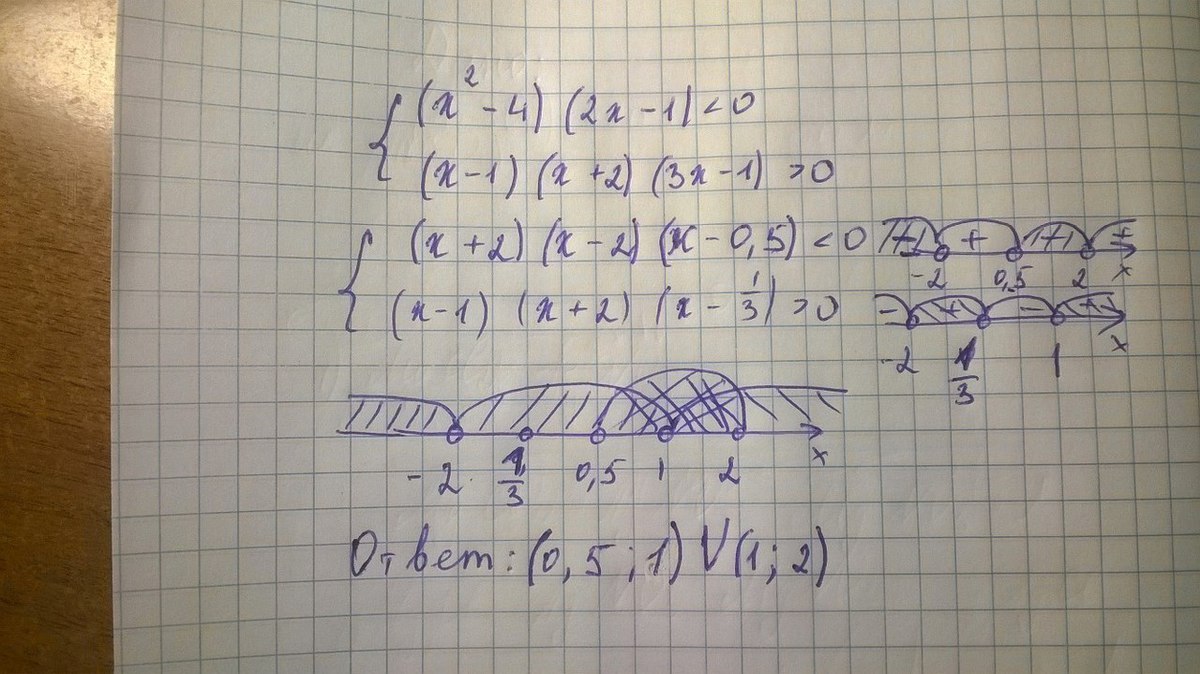 { (x² - 4) (2x - 1) < 0
(x - 1) (x + 2) (3x - 1) > 0
{ (x + 2) (x - 2) (x - 0,5) < 0
(x - 1) (x + 2) (x - 1/3) > 0
+
-2 0,5 2 x
- + - +
-2 1/3 1 x
-2 1/3 0,5 1 2 x
Ответ: (0,5 ; 1) V (1 ; 2)